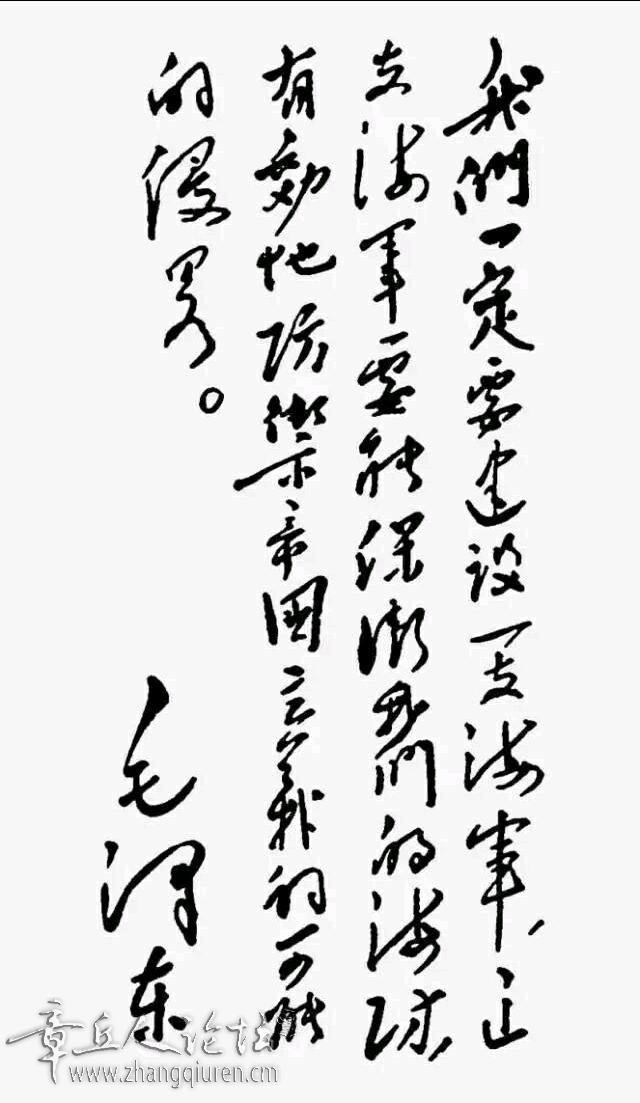 我們一定要建设一支海军，这
支海军要能保衛我們的海防，
有効地防禦帝國主義的可能
的侵畧。
毛泽东
章丘人论坛
www.zhangqiuren.cn